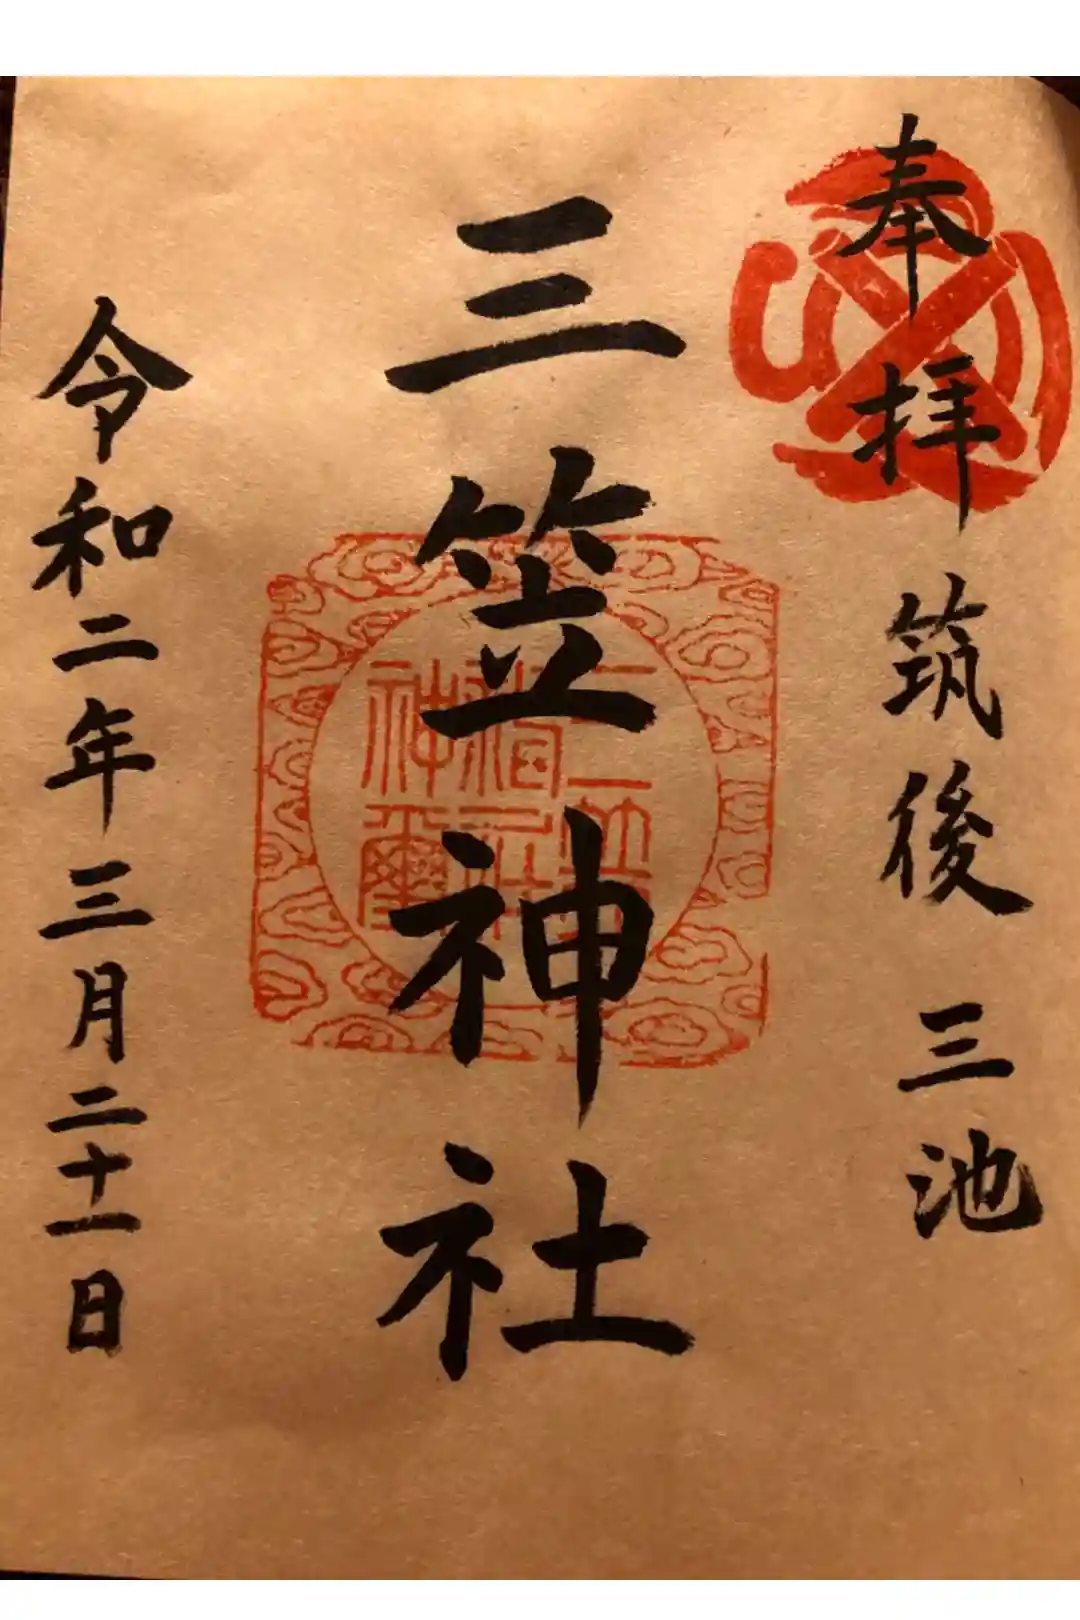 奉拝
筑後 三池
三笠神社
令和二年三月二十一日